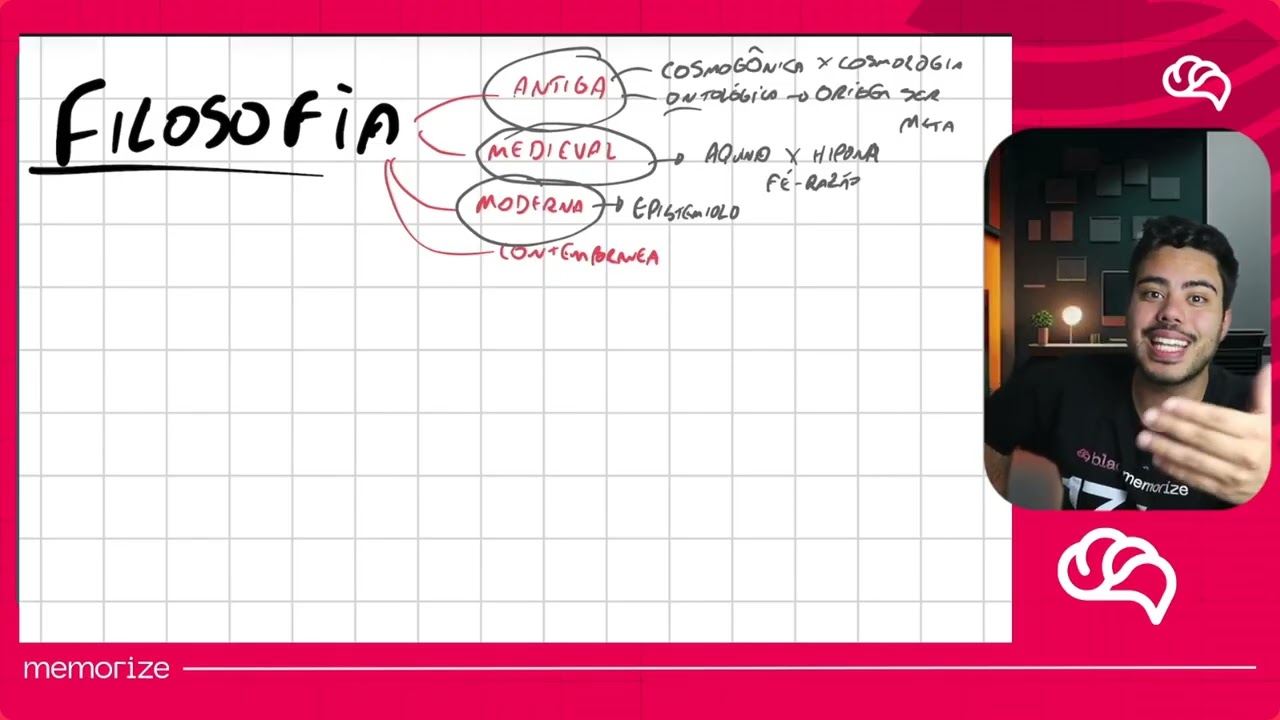 FILOSOFIA
ANTIGA
COSMOGÔNICA X COSMOLOGIA
ONTOLÓGICO → ORIGEM SER
META
MEDIEVAL → AQUINO X HIPONA
FÉ-RAZÃO
MODERNA → EPISTEMIOLO
CONTEMPORANEA
bla
memorize
memorize